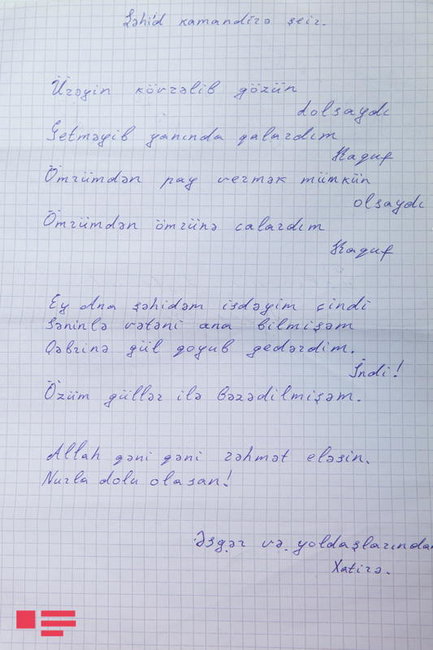 Şəhid kamandirə şeir.
Ürəyin kövrəlib gözün
dolsaydı
Getməyib yanında qalardım
Haguf
Ömrümdən pay vermək mümkün
olsaydı
Ömrümdən ömrünə calardım
Haguf
Ey Ana şəhidəm isdəyim çindi
Səninlə vətəni ana bilmişəm
Qəbrinə gül qoyub gedərdim.
İndi!
Özüm güllər ilə bəzədilmişəm.
Allah qəni qəni rəhmət eləsin.
Nurla dolu olasan!
Əsgər və yoldaşlarından
Xatirə.